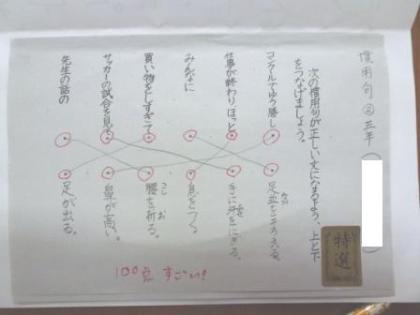 慣用句② 五年
次の慣用句が正しい文になるよう、上と下
をつなげましょう。
コンクールでゆう勝し
仕事が終わりほっと
みんなに
買い物をしすぎて
サッカーの試合を見て
先生の話の
足並をそろえる。
手に汗をにぎる。
息をつく。
腰を折る。
こし
お
鼻が高い。
足が出る。
特選
100点 すごい!